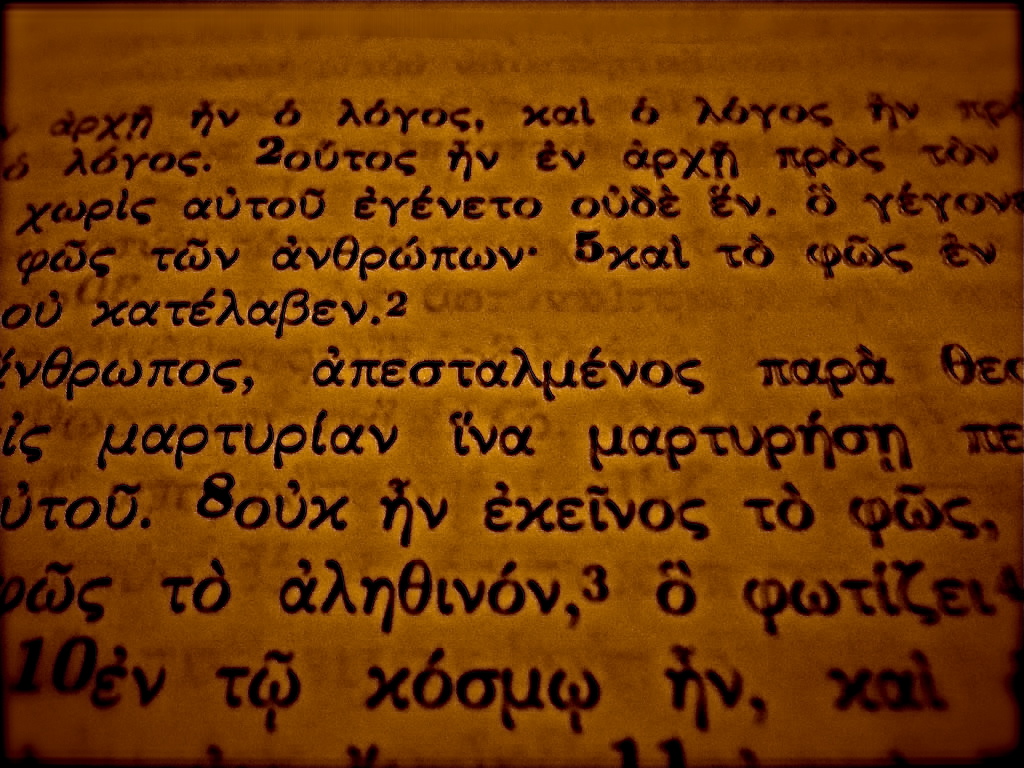 ἀρχῇ ἦν ὁ λόγος, καὶ ὁ λόγος ἦν
ὁ λόγος. 2οὗτος ἦν ἐν ἀρχῇ πρὸς τὸν
χωρὶς αὐτοῦ ἐγένετο οὐδὲ ἕν. ὃ γέγονε
φῶς τῶν ἀνθρώπων· 5καὶ τὸ φῶς ἐν
οὐ κατέλαβεν.2
ἄνθρωπος, ἀπεσταλμένος παρὰ θεο
ἰς μαρτυρίαν ἵνα μαρτυρήσῃ πε
ὐτοῦ. 8οὐκ ἦν ἐκεῖνος τὸ φῶς,
φῶς τὸ ἀληθινόν,3 ὃ φωτίζει4
10ἐν τῷ κόσμῳ ἦν, καὶ
11